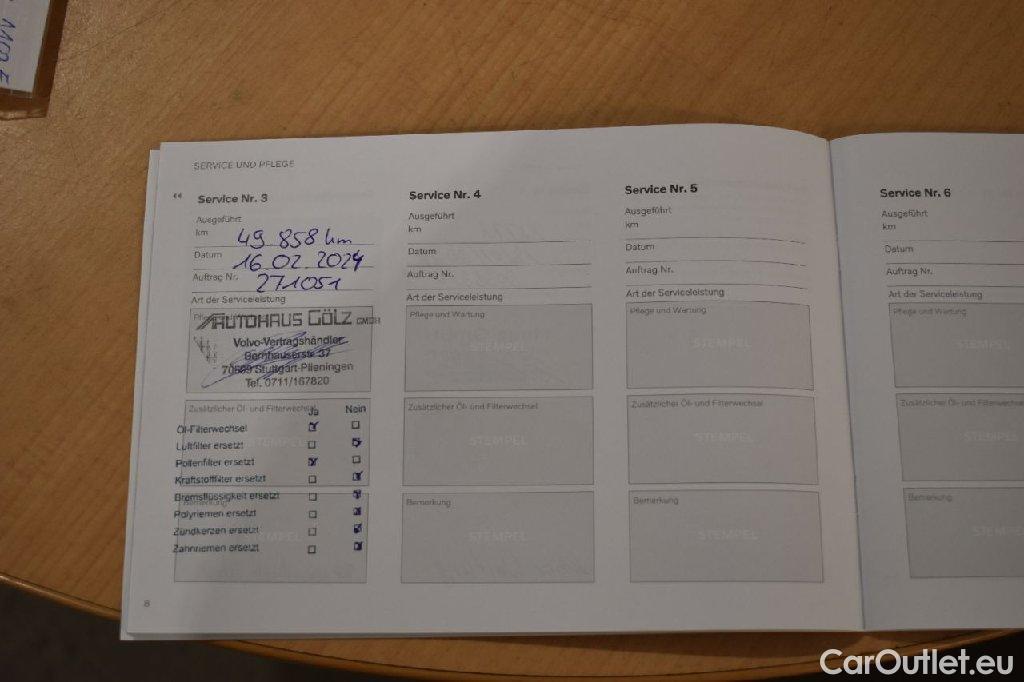 1100 F
SERVICE UND PFLEGE
Service Nr. 3
Ausgeführt
km 49 858 km
Datum 16 02 2024
Auftrag Nr. 271051
Art der Serviceleistung
Pflege und Wartung
AUTOHAUS GÖLZ GMBH
Volvo-Vertragshändler
Bernhauserstr 37
70599 Stuttgart-Plieningen
Tel. 0711/167820
Zusätzlicher Öl- und Filterwechsel
Ja Nein
Öl-Filterwechsel
Luftfilter ersetzt
Pollenfilter ersetzt
Kraftstofffilter ersetzt
Bremsflüssigkeit ersetzt
Bemerkung
Polyriemen ersetzt
Zündkerzen ersetzt
Zahnriemen ersetzt
8
Service Nr. 4
Ausgeführt
km
Datum
Auftrag Nr.
Art der Serviceleistung
Pflege und Wartung
STEMPEL
Zusätzlicher Öl- und Filterwechsel
STEMPEL
Bemerkung
STEMPEL
Service Nr. 5
Ausgeführt
km
Datum
Auftrag Nr.
Art der Serviceleistung
Pflege und Wartung
STEMPEL
Zusätzlicher Öl- und Filterwechsel
STEMPEL
Bemerkung
STEMPEL
Service Nr. 6
Ausgeführt
km
Datum
Auftrag Nr.
Art der Serviceleistung
Pflege und Wartung
Zusätzlicher Öl- und Filterwechs
Bemerkung
CarOutlet.eu